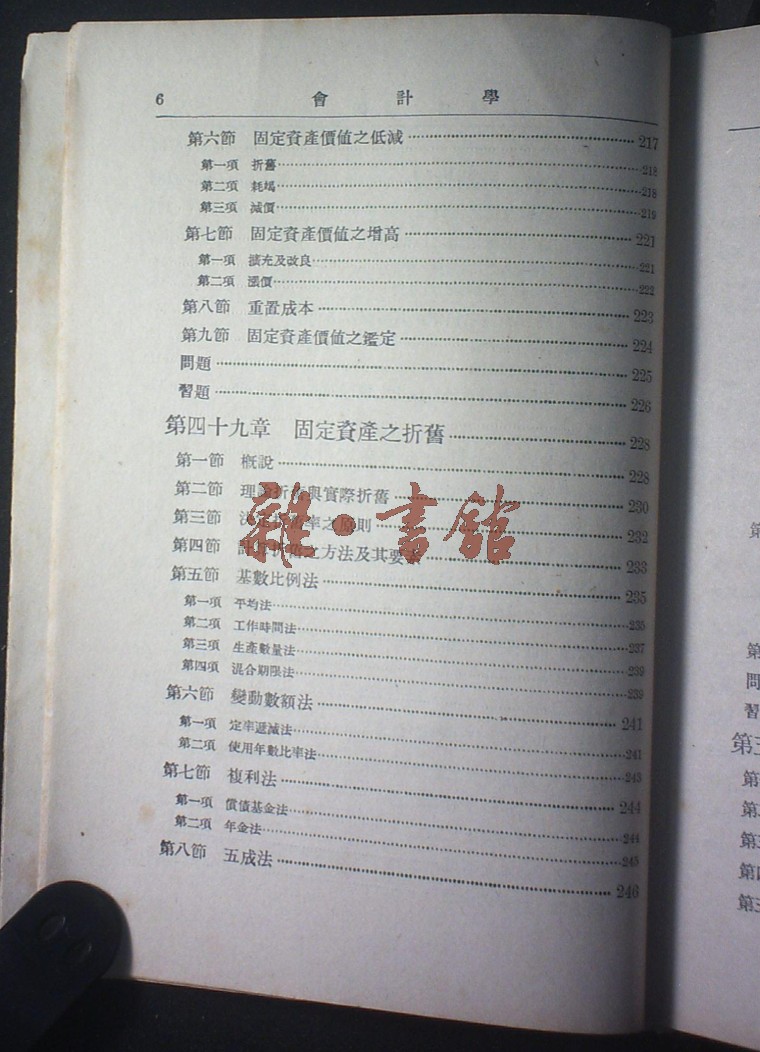 6 會計學
第六節 固定資產價值之低減 217
第一項 折舊 218
第二項 耗竭 218
第三項 減價 219
第七節 固定資產價值之增高 221
第一項 擴充及改良 221
第二項 漲價 222
第八節 重置成本 223
第九節 固定資產價值之鑑定 224
問題 225
習題 226
第四十九章 固定資產之折舊 228
第一節 概說 228
第二節 理論折舊與實際折舊 230
第三節 決定折舊率之原則 232
第四節 計算折舊之方法及其要素 233
第五節 基數比例法 235
第一項 平均法 235
第二項 工作時間法 237
第三項 生產數量法 239
第四項 混合期限法 239
第六節 變動數額法 241
第一項 定率遞減法 241
第二項 使用年數比率法 243
第七節 複利法 244
第一項 償債基金法 244
第二項 年金法 245
第八節 五成法 246
雜·書館
第
第
問
習
第五
第
第二
第三
第四
第五